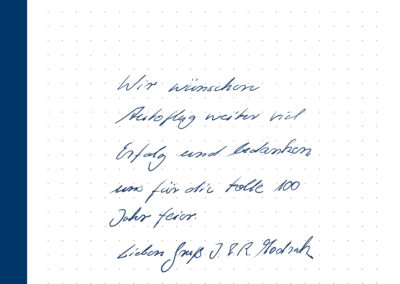 Wir wünschen
Autoflug weiter viel
Erfolg und bedanken
uns für die tolle 100
Jahr feier
Lieben Gruß J. & R.